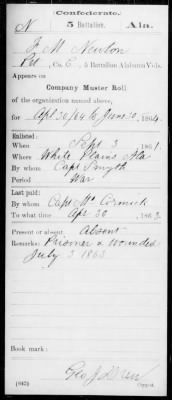 Confederate.
N 5 Battalion. Ala.
J M Newton
Pvt, Co. C, 5 Battalion Alabama Vols.
Appears on
Company Muster Roll
of the organization named above,
for Apl 30/64 to June 30, 1864.
Enlisted:
When Sept 3, 1861.
Where White Plains Ala
By whom Capt Smyth
Period War
Last paid:
By whom Capt McCormick
To what time Apr 30, 1863.
Present or absent Absent
Remarks: Prisoner & wounded
July 3 1863
Book mark:
(642) Copyist.